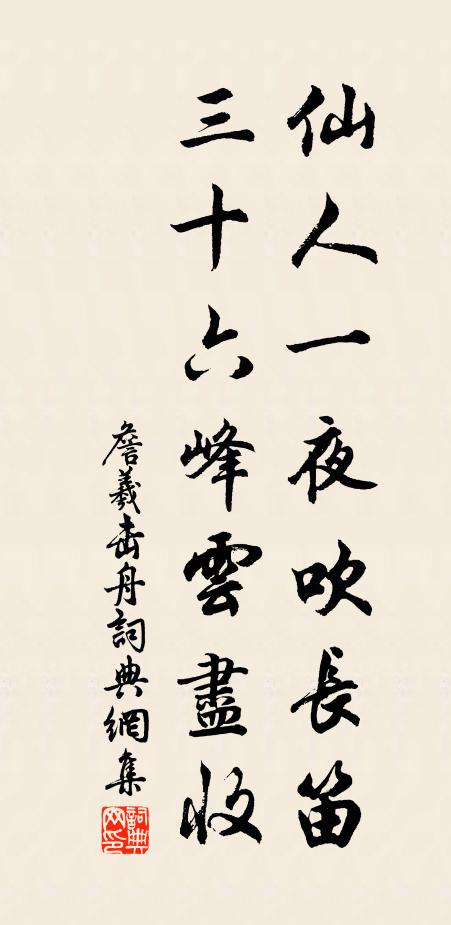 仙人一夜吹長笛
三十六峰雲盡收
詹羲書舟詞典網集
詞典網印